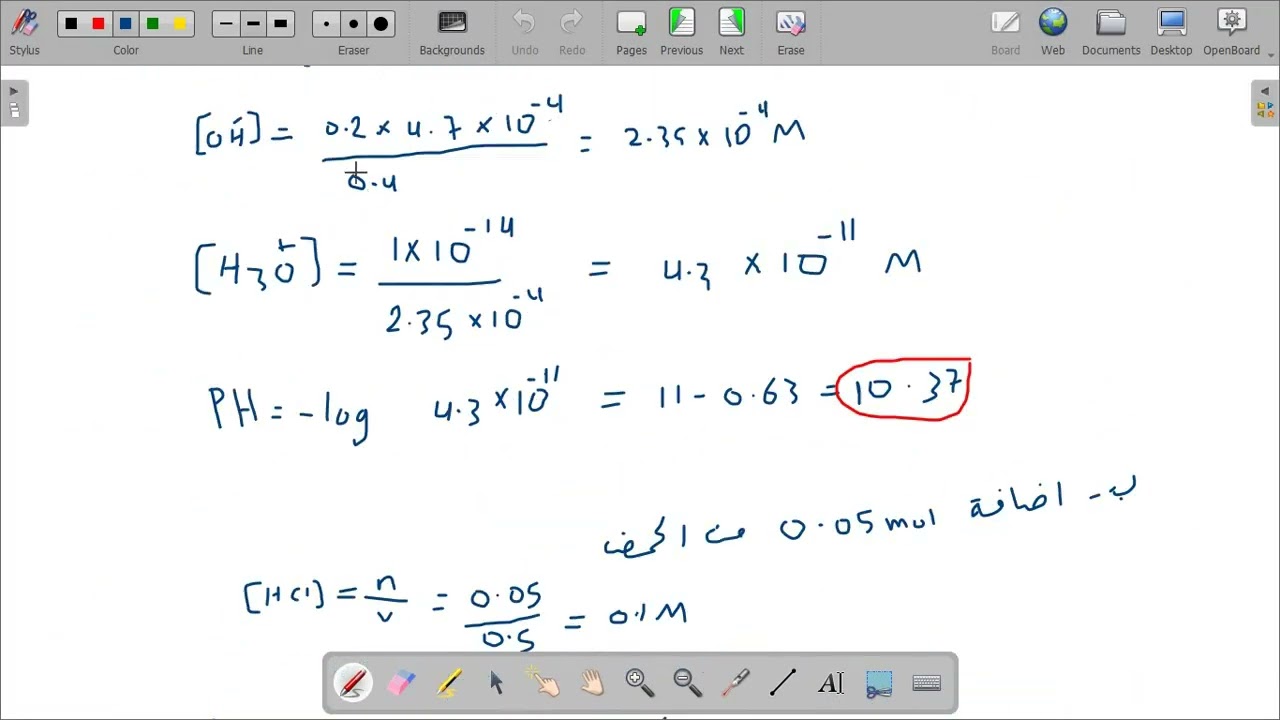 Stylus Color Line Eraser Backgrounds Undo Redo Pages Previous Next Erase Board Web Documents Desktop OpenBoard
[OH⁻] = 0.2 × 4.7 × 10⁻⁴ / 0.4 = 2.35 × 10⁻⁴ M
[H3O⁺] = 1 × 10⁻¹⁴ / 2.35 × 10⁻⁴ = 4.3 × 10⁻¹¹ M
PH = -log 4.3 × 10⁻¹¹ = 11 - 0.63 = 10.37
ب - اضافة 0.05 mol من الحمض
[HCl] = n / v = 0.05 / 0.5 = 0.1 M
AI